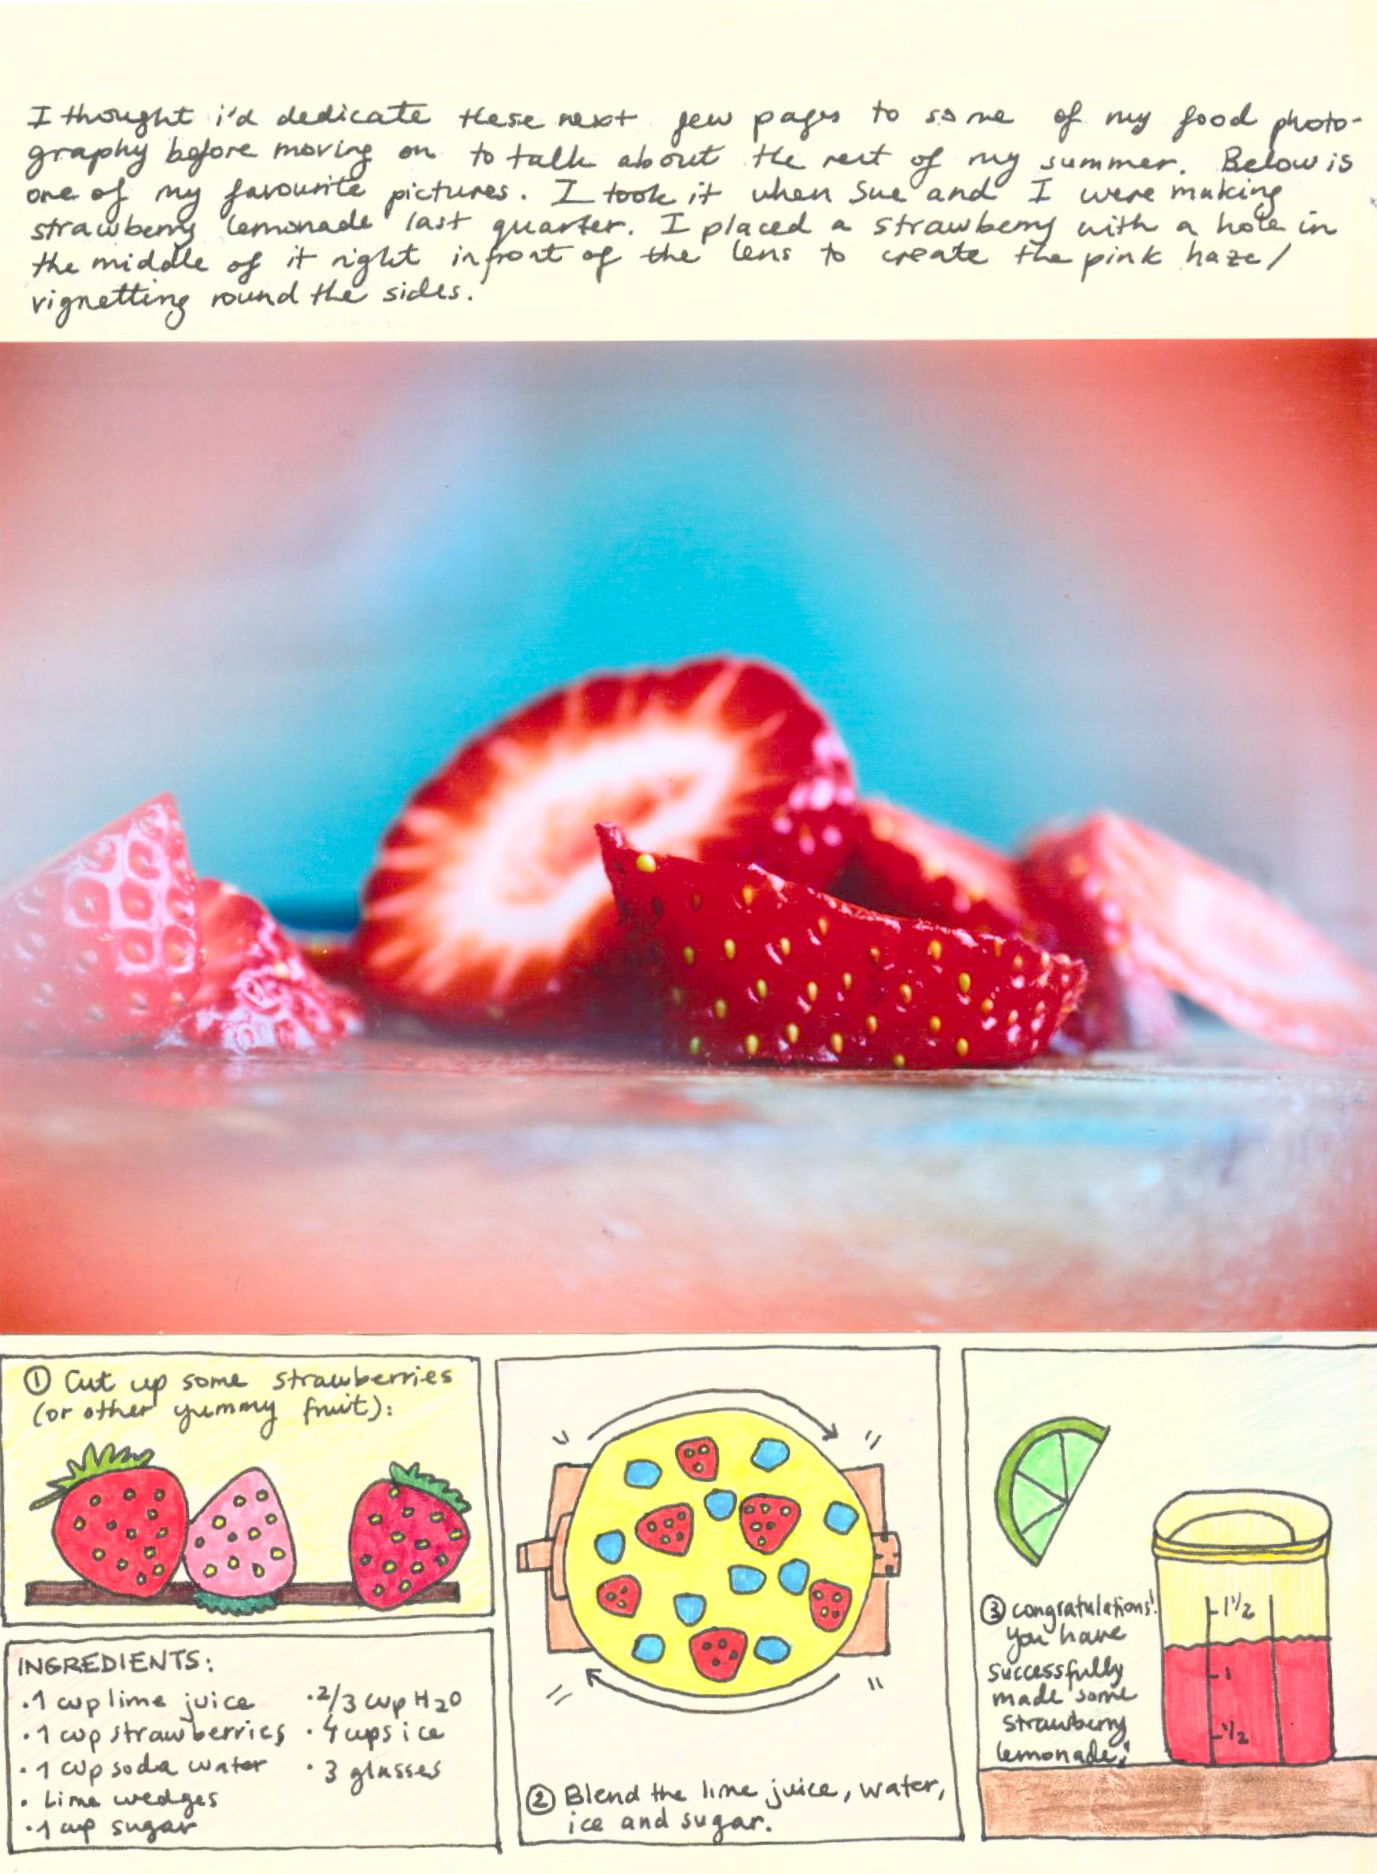 I thought i'd dedicate these next few pages to some of my food photo-
graphy before moving on to talk about the rest of my summer. Below is
one of my favourite pictures. I took it when Sue and I were making
strawberry lemonade last quarter. I placed a strawberry with a hole in
the middle of it right infront of the lens to create the pink haze/
vignetting round the sides.
① Cut up some strawberries
(or other yummy fruit):
INGREDIENTS:
·1 cup lime juice
·1 cup strawberries
·1 cup soda water
· Lime wedges
·1 cup sugar
·2/3 cup H2O
·4 cups ice
·3 glasses
② Blend the lime juice, water,
ice and sugar.
③ congratulations!
You have
successfully
made some
strawberry
lemonade!
1 1/2
1
1/2